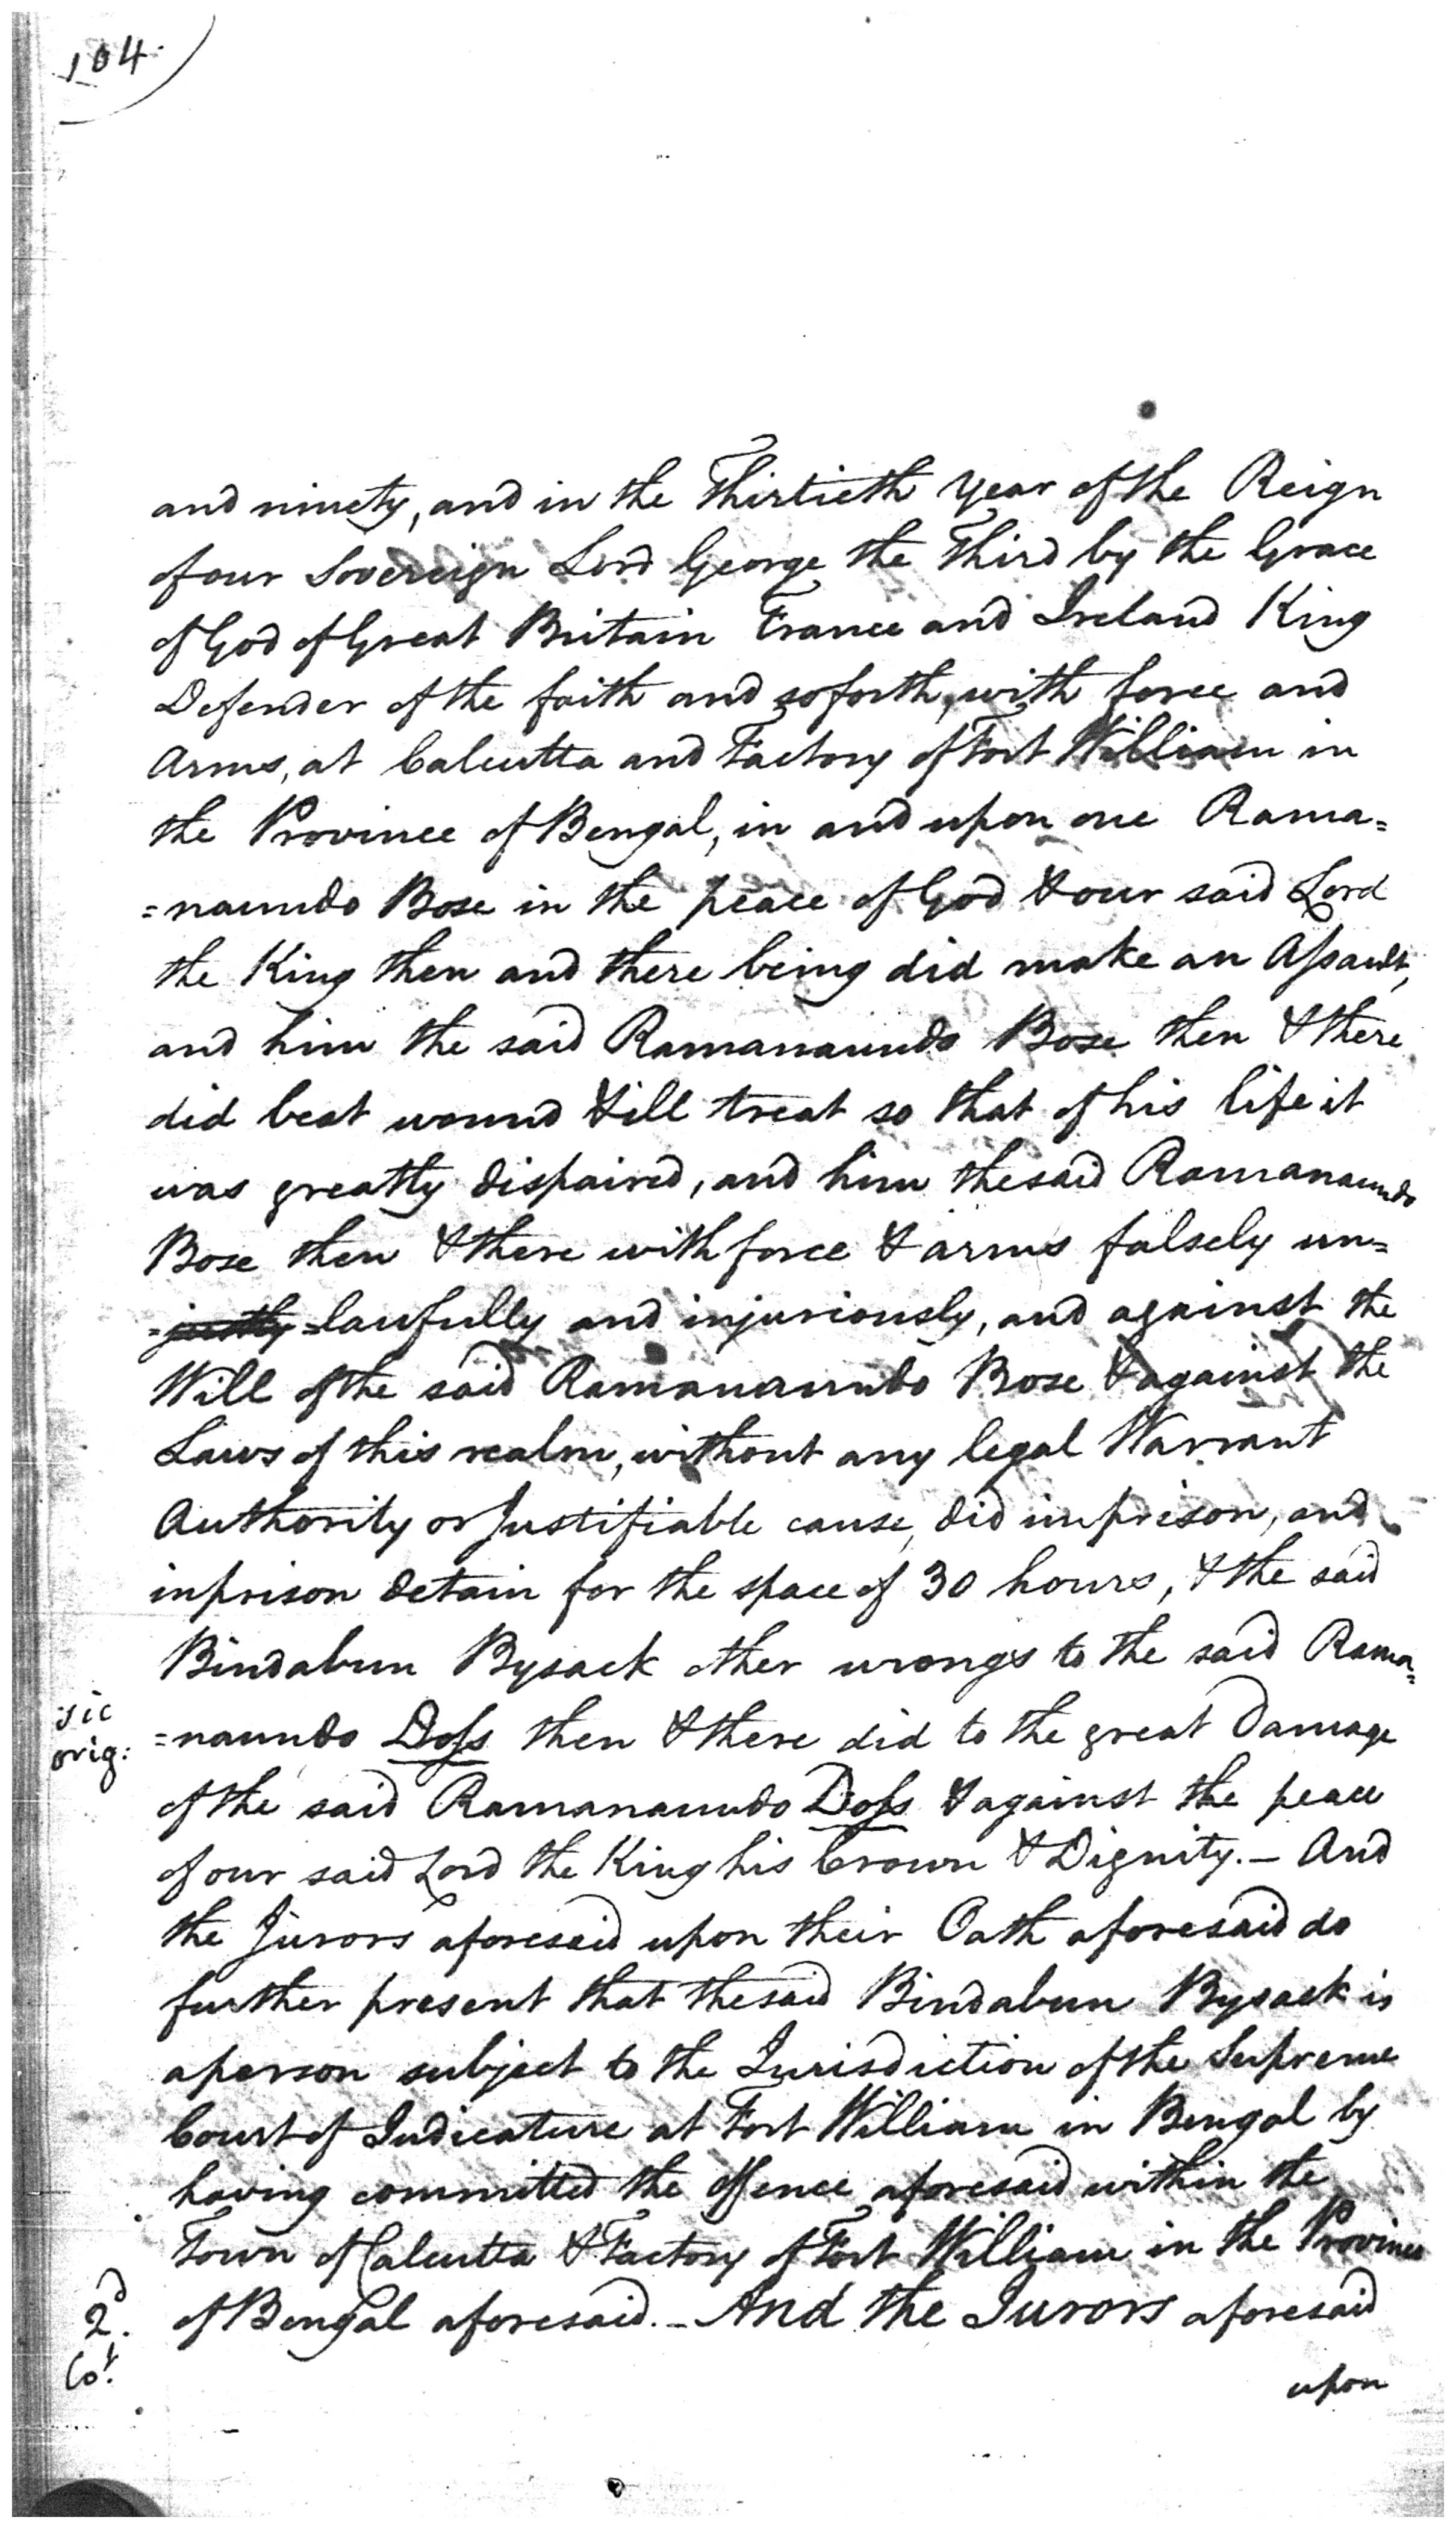 104.
and ninety, and in the Thirtieth Year of the Reign
of our Sovereign Lord George the Third by the Grace
of God of Great Britain France and Ireland King
Defender of the faith and soforth, with force and
Arms, at Calcutta and Factory of Fort William in
the Province of Bengal, in and upon one Rama=
=naundo Bose in the peace of God & our said Lord
the King then and there being did make an Assault,
and him the said Ramanaundo Bose then & there
did beat wound & ill treat so that of his life it
was greatly dispaired, and him the said Ramanaundo
Bose then & there with force & arms falsely un=
=justly =lawfully and injuriously, and against the
Will of the said Ramanaundo Bose & against the
Laws of this realm, without any legal Warrant
Authority or Justifiable cause, did imprison, and
inprison detain for the space of 30 hours, & the said
Bindabun Bysack other wrongs to the said Rama=
sic
orig:
=naundo Doss then & there did to the great Damage
of the said Ramanaundo Doss & against the peace
of our said Lord the King his Crown & Dignity. – And
the Jurors aforesaid upon their Oath aforesaid do
further present that the said Bindabun Bysack is
a person subject to the Jurisdiction of the Supreme
Court of Judicature at Fort William in Bengal by
having committed the offence aforesaid within the
Town of Calcutta & Factory of Fort William in the Province
2d.
Cot.
of Bengal aforesaid. – And the Jurors aforesaid
upon